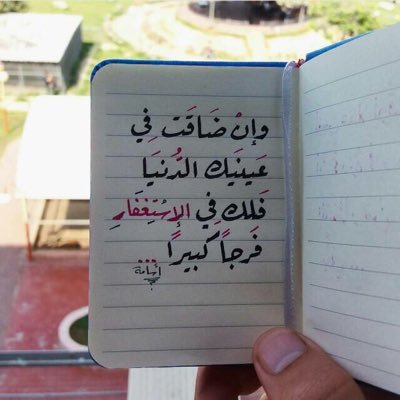 وإنْ ضَاقَت فِي
عَينَيك الدُّنيَا
فَلك فِي الإستِغفَارِ
فَرجاً كبيراً
أسامة